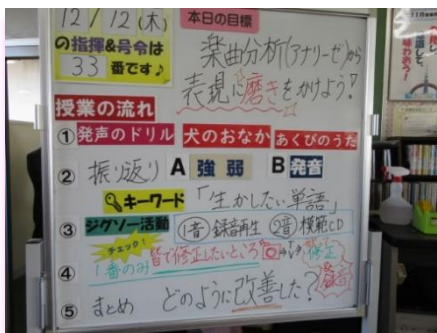 12/12(木)
の指揮&号令は
33番です♪
本日の目標
楽曲分析(アナリーゼ)から
表現に磨きをかけよう!
授業の流れ
①発声のドリル 犬のおなか あくびのうた
②振り返り A 強弱 B 発音
キーワード「生かしたい単語」
③ジグソー活動 ①音 録音再生 ②音 模範CD
チェック!
④1番のみ 皆で修正したいところ 修正
録音
⑤まとめ どのように改善した?